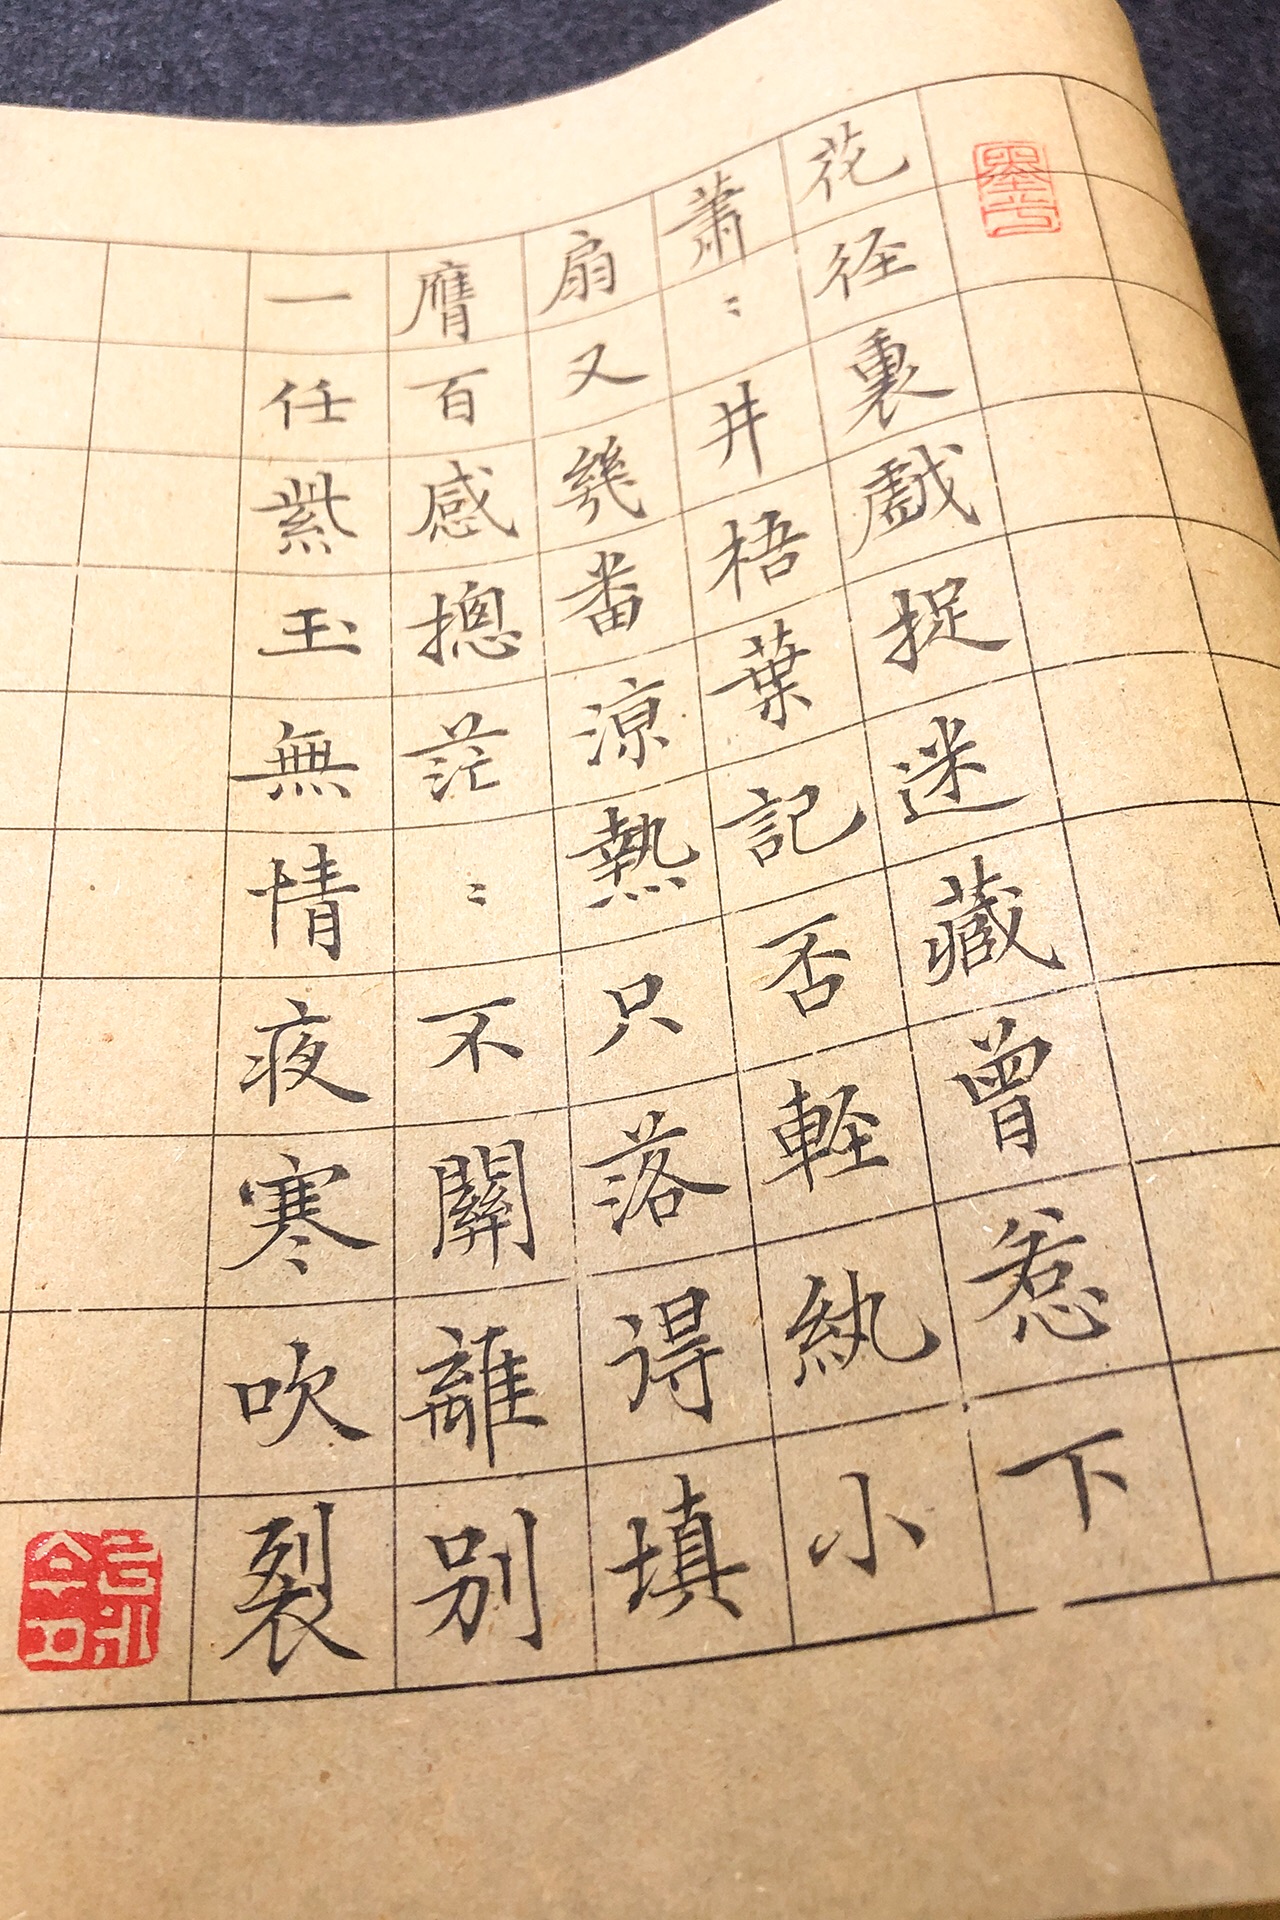 花径裏戲捉迷藏曾惹下
蕭〻井梧葉記否軽紈小
扇又幾番涼熱只落得填
膺百感摠茫〻不關離別
一任紫玉無情夜寒吹裂